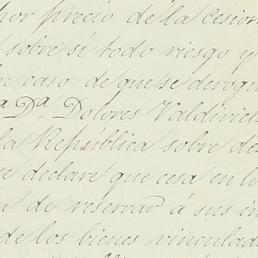 por precio de la cesion
sobre sí todo riesgo y
caso, de que se derogu
Dª Dolores Valdivie
la República sobre de
se declare que cesa en lo
de reservar á sus in
de los bienes vinculad